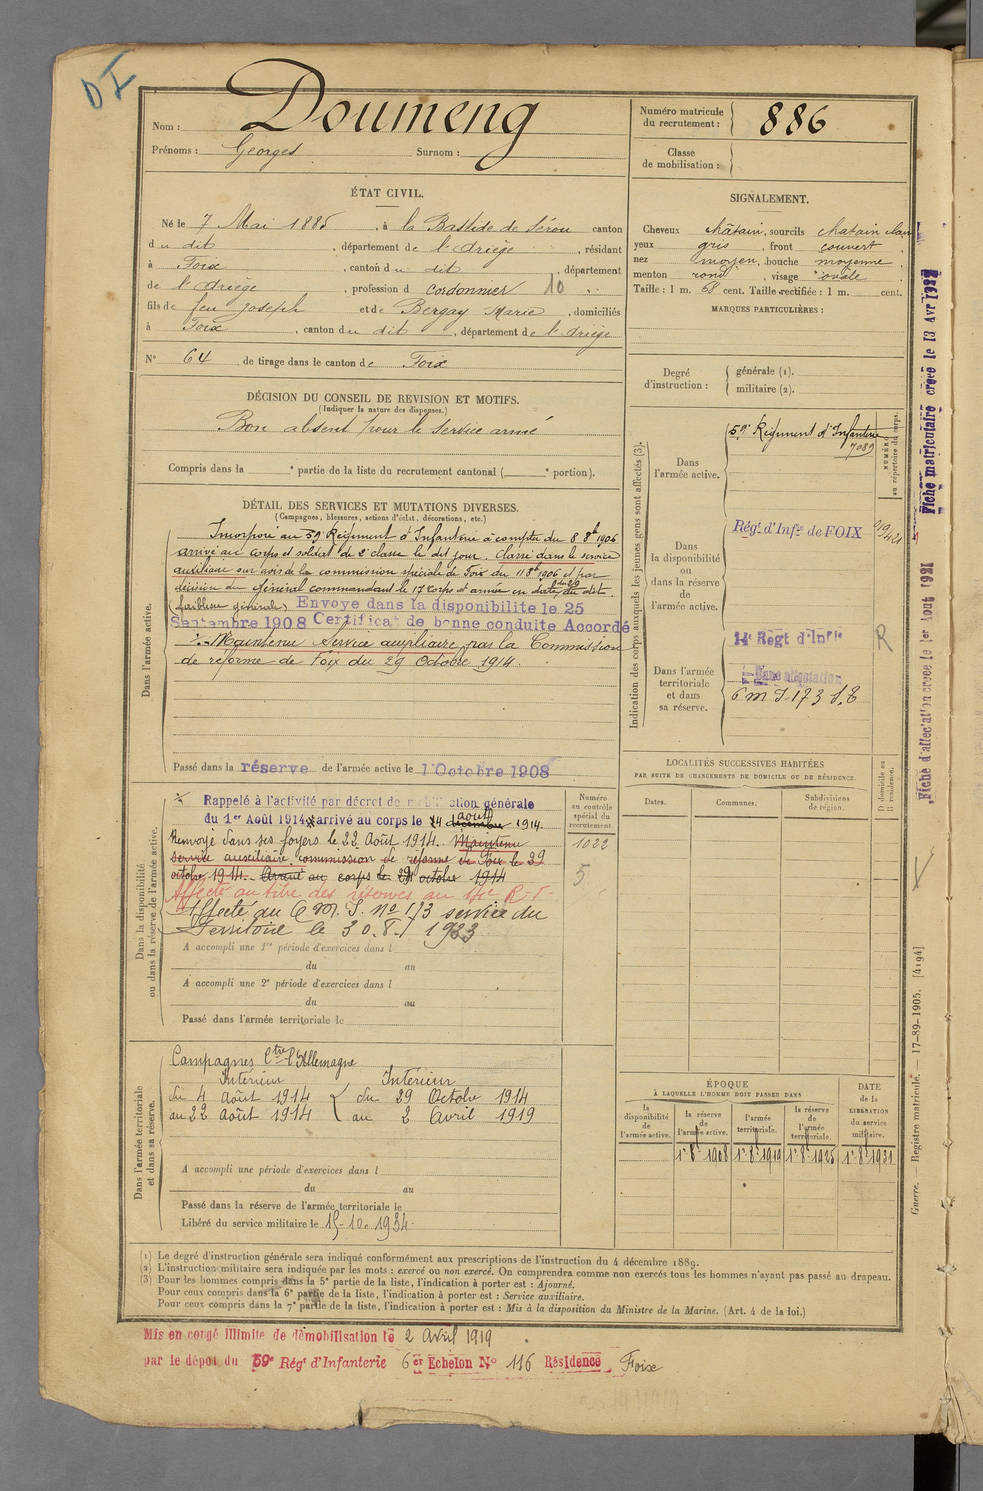 DI
Nom : Doumeng
Prénoms : Georges Surnom :
Numéro matricule du recrutement : 886
Classe de mobilisation :
ÉTAT CIVIL.
Né le 7 Mai 1885, à la Bastide de Sérou canton
du dit, département de l'Ariège, résidant
à Foix, canton du dit, département
de l'Ariège, profession d cordonnier 10
fils de feu Joseph et de Bergay Marie, domiciliés
à Foix, canton du dit, département de l'Ariège
N° 64 de tirage dans le canton de Foix
SIGNALEMENT.
Cheveux châtain, sourcils chatain clair
yeux gris, front couvert
nez moyen, bouche moyenne
menton rond, visage ovale
Taille : 1 m. 68 cent. Taille rectifiée : 1 m. cent.
MARQUES PARTICULIÈRES :
Degré d'instruction : générale (1).
militaire (2).
DÉCISION DU CONSEIL DE REVISION ET MOTIFS.
(Indiquer la nature des dispenses.)
Bon absent pour le service armé
Compris dans la e partie de la liste du recrutement cantonal ( e portion).
DÉTAIL DES SERVICES ET MUTATIONS DIVERSES.
(Campagnes, blessures, actions d'éclat, décorations, etc.)
Dans l'armée active.
Incorporé au 59e Régiment d'Infanterie à compter du 8 8bre 1906
arrivé au corps et soldat de 2e classe le dit jour. Classé dans le service
auxiliaire sur avis de la commission spéciale de Foix du 11 8bre 1906 et par
décision du Général commandant le 17e corps d'armée en date du dit
(faiblesse générale) Envoyé dans la disponibilité le 25
Septembre 1908 Certificat de bonne conduite Accordé
Maintenu service auxiliaire par la Commission
de reforme de Foix du 29 Octobre 1914.
Passé dans la réserve de l'armée active le 1 Octobre 1908
Indication des corps auxquels les jeunes gens sont affectés (3).
Dans l'armée active.
59e Régiment d'Infanterie
7089
NUMÉRO au répertoire du corps.
Dans la disponibilité ou dans la réserve de l'armée active.
Régt d'Infie de FOIX
Dans l'armée territoriale et dans sa réserve.
14e Régt d'Infie
Sans affectation
R
LOCALITÉS SUCCESSIVES HABITÉES
PAR SUITE DE CHANGEMENTS DE DOMICILE OU DE RÉSIDENCE.
Dates. Communes. Subdivisions de région. D domicile ou R résidence.
Dans la disponibilité ou dans la réserve de l'armée active.
Numéro au contrôle spécial du recrutement.
1022
5
Rappelé à l'activité par décret de mobilisation générale
du 1er Août 1914, arrivé au corps le 4 décembre août 1914.
Renvoyé dans ses foyers le 22 Août 1914. Maintenu
service auxiliaire commission de reforme de Foix le 29
octobre 1914. Arrivé au corps le 29 octobre 1914
Affecté au titre des réserves au 14e R.I.
Affecté au 6 M. I. No 173 service du
Territoire le 30.8. 1933
A accompli une 1re période d'exercices dans l
du au
A accompli une 2e période d'exercices dans l
du au
Passé dans l'armée territoriale le
Dans l'armée territoriale et dans sa réserve.
Campagnes Ctre l'Allemagne
Intérieur Intérieur
du 4 Août 1914 { du 29 Octobre 1914
au 22 Août 1914 { au 2 Avril 1919
A accompli une période d'exercices dans l
du au
Passé dans la réserve de l'armée territoriale le
Libéré du service militaire le 15-10. 1934
ÉPOQUE
À LAQUELLE L'HOMME DOIT PASSER DANS
la disponibilité de l'armée active. la réserve de l'armée active. l'armée territoriale. la réserve de l'armée territoriale.
DATE de la LIBÉRATION du service militaire.
1r 8bre 1908 1r 8bre 1919 1r 8bre 1925 1r 8bre 1931
(1) Le degré d'instruction générale sera indiqué conformément aux prescriptions de l'instruction du 4 décembre 1889.
(2) L'instruction militaire sera indiquée par les mots : exercé ou non exercé. On comprendra comme non exercés tous les hommes n'ayant pas passé au drapeau.
(3) Pour les hommes compris dans la 5e partie de la liste, l'indication à porter est : Ajourné.
Pour ceux compris dans la 6e partie de la liste, l'indication à porter est : Service auxiliaire.
Pour ceux compris dans la 7e partie de la liste, l'indication à porter est : Mis à la disposition du Ministre de la Marine. (Art. 4 de la loi.)
Mis en congé illimité de démobilisation le 2 Avril 1919
par le dépôt du 59e Régt d'Infanterie 6er Echelon N° 116 Résidence Foix
Fiche matriculaire créée le 13 Avr
Fiche d'affectation créée le 1er Aout 1931
Guerre. Registre matricule. — 17-89-1905. [4194]